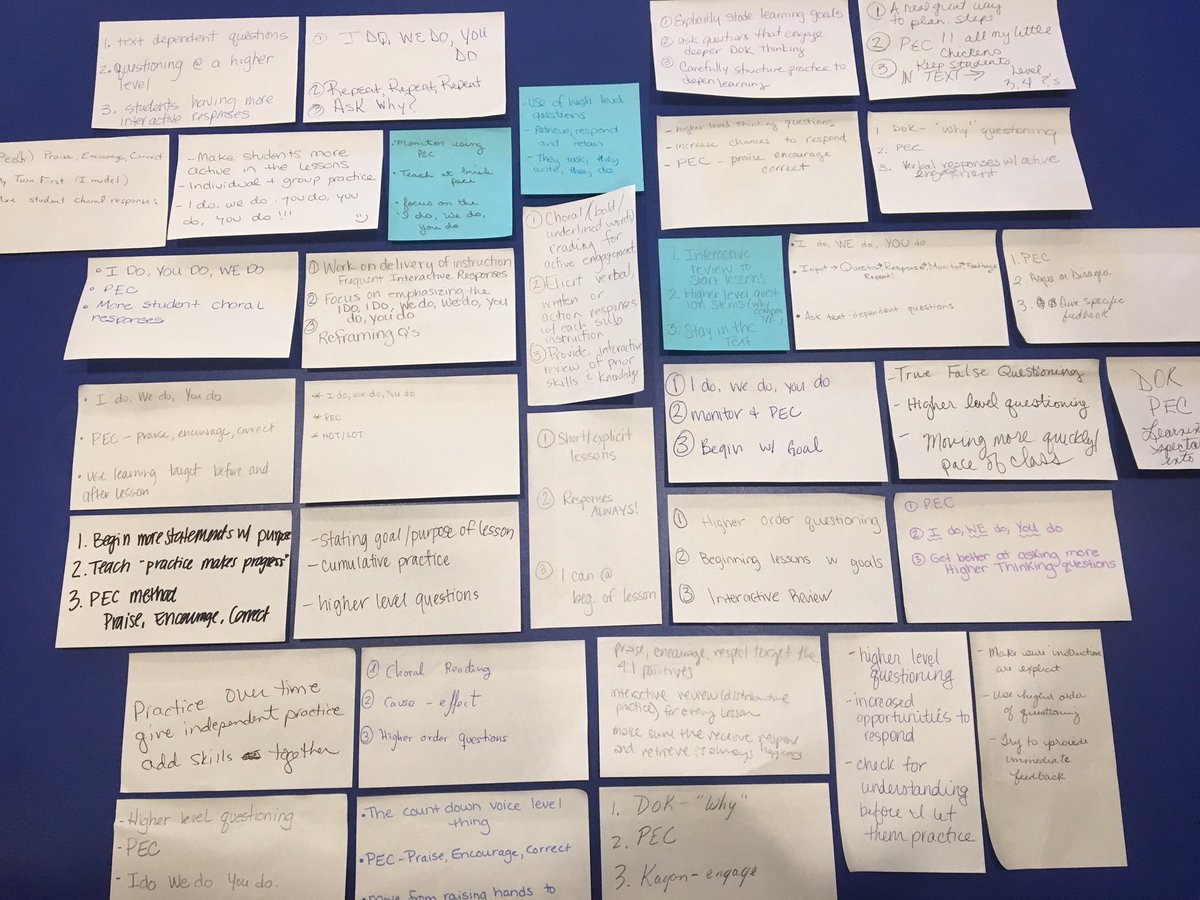 1. text dependent questions
2. Questioning @ a higher
level
3. students having more
interactive responses
① I DO, WE DO, YOU
DO
② Repeat, Repeat, Repeat
③ Ask Why?
① Explicitly state learning goals
② ask questions that engage
deeper DOK thinking
③ Carefully structure practice to
deepen learning
① A real great way
to plan. steps
② PEC !! all my little
chickens
③ Keep students
IN TEXT → Level
3, 4 ?'s
-Use of high level
questions
- Retrieve, respond
and retain
- They talk, they
write, they do
Praise, Encourage, Correct
My Turn First (I model)
More student choral responses
- Make students more
active in the lessons
- Individual + group practice
- I do, we do. you do, you
do, you do !!!
• Monitor using
PEC
• Teach at brisk
pace
• focus on the
I do, We do,
you do
- higher level thinking questions
- increase chances to respond
- PEC - praise encourage
correct
1 DOK - "Why" questioning
2. PEC
3. Verbal responses w/ active
① Choral (bold/
underlined words)
reading for
active engagement
② Elicit verbal,
written or
action responses
w/ each sub-
instruction
③ Provide interactive
review of prior
skills & knowledge
• I DO, YOU DO, WE DO
• PEC
• More student choral
responses
① Work on delivery of instruction
Frequent Interactive Responses
② Focus on emphasizing the
I DO, I Do, We do, We do, you
do, you do
③ Reframing Q's
1. Interactive
review to
start lessons
2. Higher level quest-
ion stems (why
compare
T/F)
3. Stay in the
Text
• I do, WE do, YOU do
• Input → Question, Response, Monitor, Feedback
Repeat!
• Ask text-dependent questions
1. PEC
2. Agree or Disagree
3. Give specific
feedback
• I do, We do, You do
• PEC - praise, encourage, correct
• Use learning target before and
after lesson
* I do, we do, You do
* PEC
* HOT/LOT
① Short/explicit
lessons
② Responses
ALWAYS!
③ I can @
beg. of lesson
① I do, We do, you do
② monitor & PEC
③ Begin w/ Goal
- True False Questioning
- Higher level questioning
- Moving more quickly/
pace of class
DOK
PEC
1. Begin more statements w/ purpose
2. Teach "practice makes progress"
3. PEC method
Praise, Encourage, Correct
- Stating goal/purpose of lesson
- cumulative practice
- higher level questions
① Higher order questioning
② Beginning lessons w goals
③ Interactive Review
① PEC
② I do, WE do, YOU do
③ Get better at asking more
Higher Thinking questions
Practice over time
give independent practice
add skills together
① Choral Reading
② cause - effect
③ Higher order questions
praise, encourage, respect forget the
4:1 positives
interactive review (distributive
practice) for every lesson
make sure the receive respond
and retrieve is always happening
- higher level
questioning
- increased
opportunities to
respond
- check for
understanding
before I let
them practice
- Make sure instructions
are explicit
- Use higher order
of questioning
- Try to provide
immediate
feedback
- Higher level questioning
- PEC
- I do We do You do.
• The count down voice level
thing
• PEC - Praise, Encourage, correct
• Move from raising hands to
1. DOK - "Why"
2. PEC
3. Kagan - engage